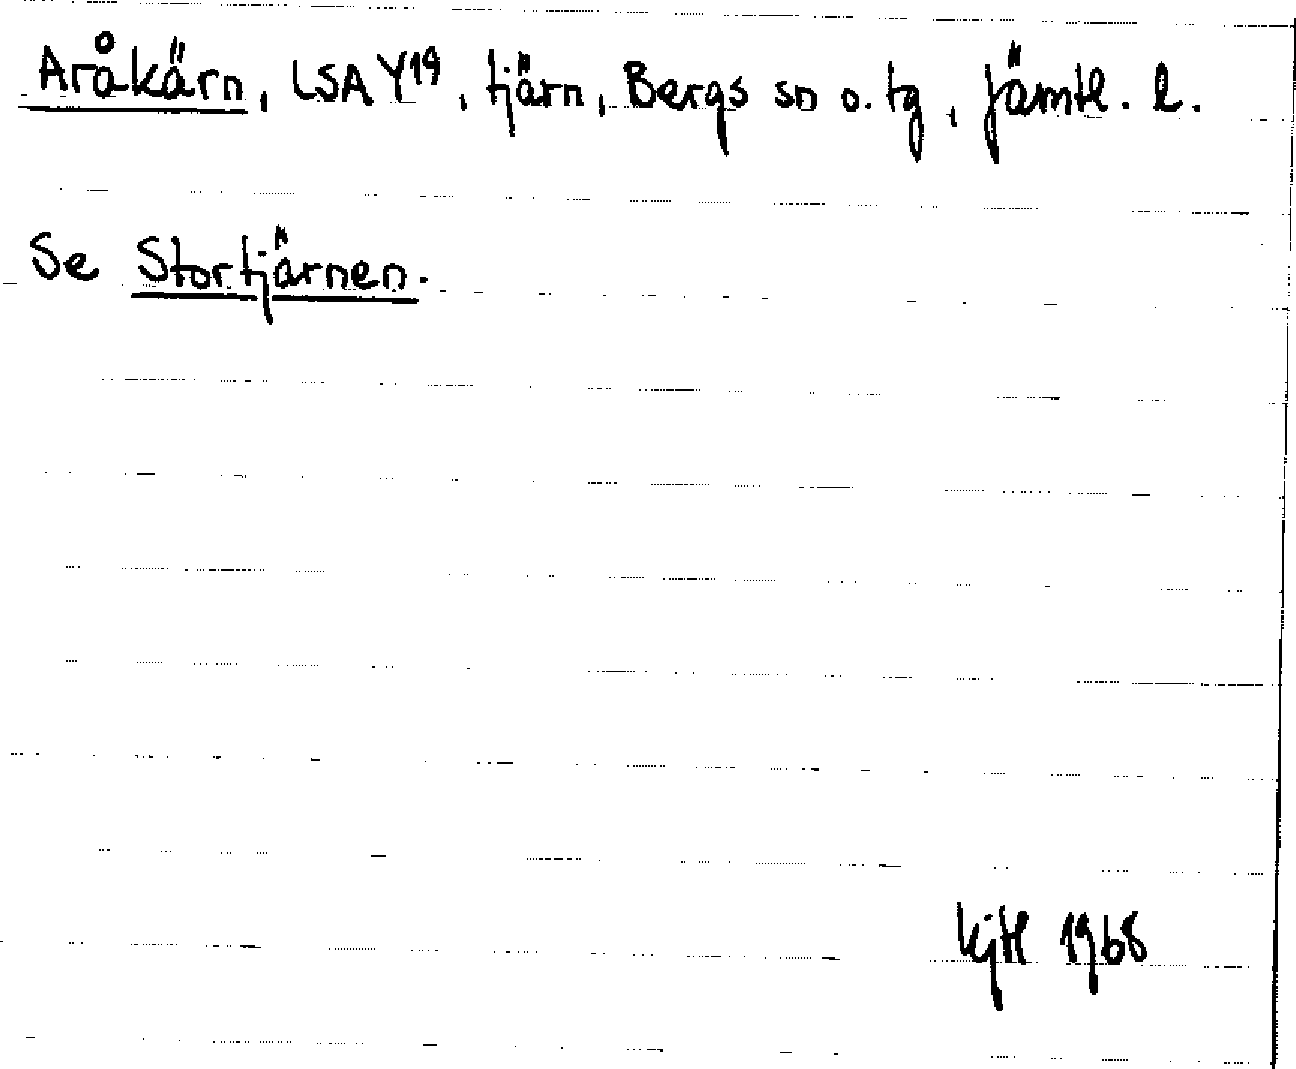 Aråkärn, LSA Y19, tjärn, Bergs sn o. tg, Jämtl. l.
Se Stortjärnen.
1968